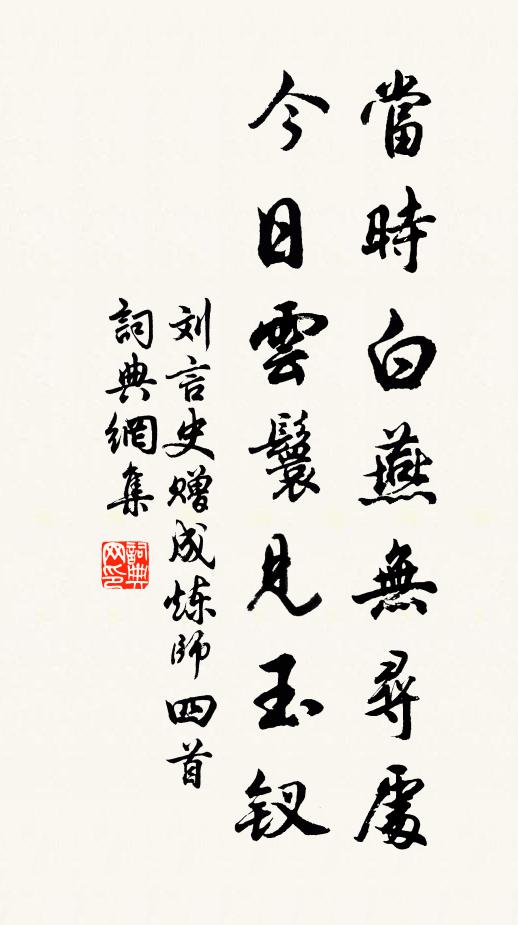 當時白燕無尋處
今日雲鬟見玉釵
刘言史赠成炼师四首
詞典網集
詞典网印